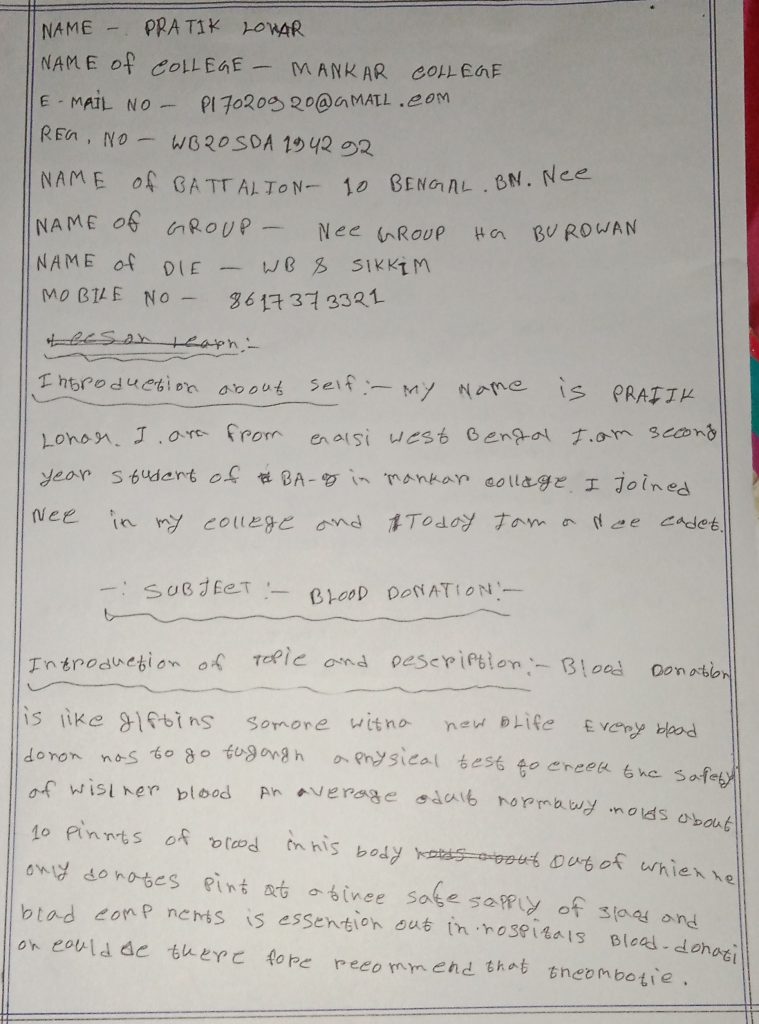 NAME - PRATIK LOHAR
NAME of COLLEGE - MANKAR COLLEGE
E-MAIL NO - P17020920@GMAIL.COM
REG, NO - WB20SDA194292
NAME of BATTALION- 10 BENGAL. BN. Ncc
NAME OF GROUP - Ncc GROUP HQ BURDWAN
NAME of DIE - WB & SIKKIM
MOBILE NO - 8617373321
Lecson Learn:-
Introduction about self:- My Name is PRATIK
Lohar. I. am from Galsi west Bengal I.am second
year student of BA-g in mankar collage. I joined
Ncc in my college and Today I am a Ncc cadet.
-: SUBJECT :- BLOOD DONATION:-
Introduction of Topic and Description:- Blood Donation
is like gifting somore witha new Life Every blood
donor has to go a physical test to check the safety
of wislher blood An average adult normawy holds about
10 pinnts of blood in his body holds about out of which he
only donates pint at a safe sapply of and
blad comp nents is essention out in hospitals Blood-donati
on could be there fore recommend that